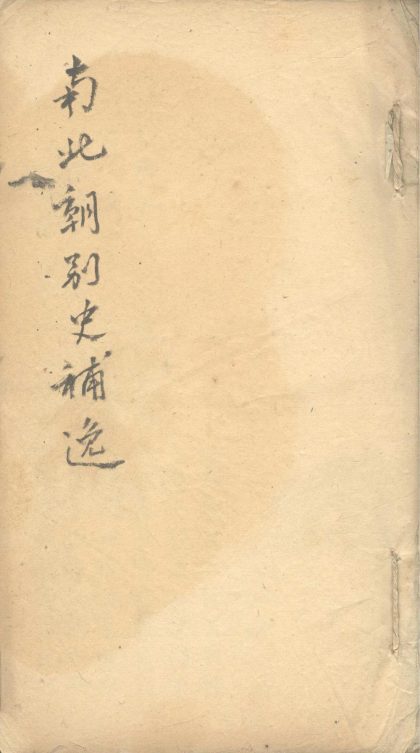 南北朝别史補逸